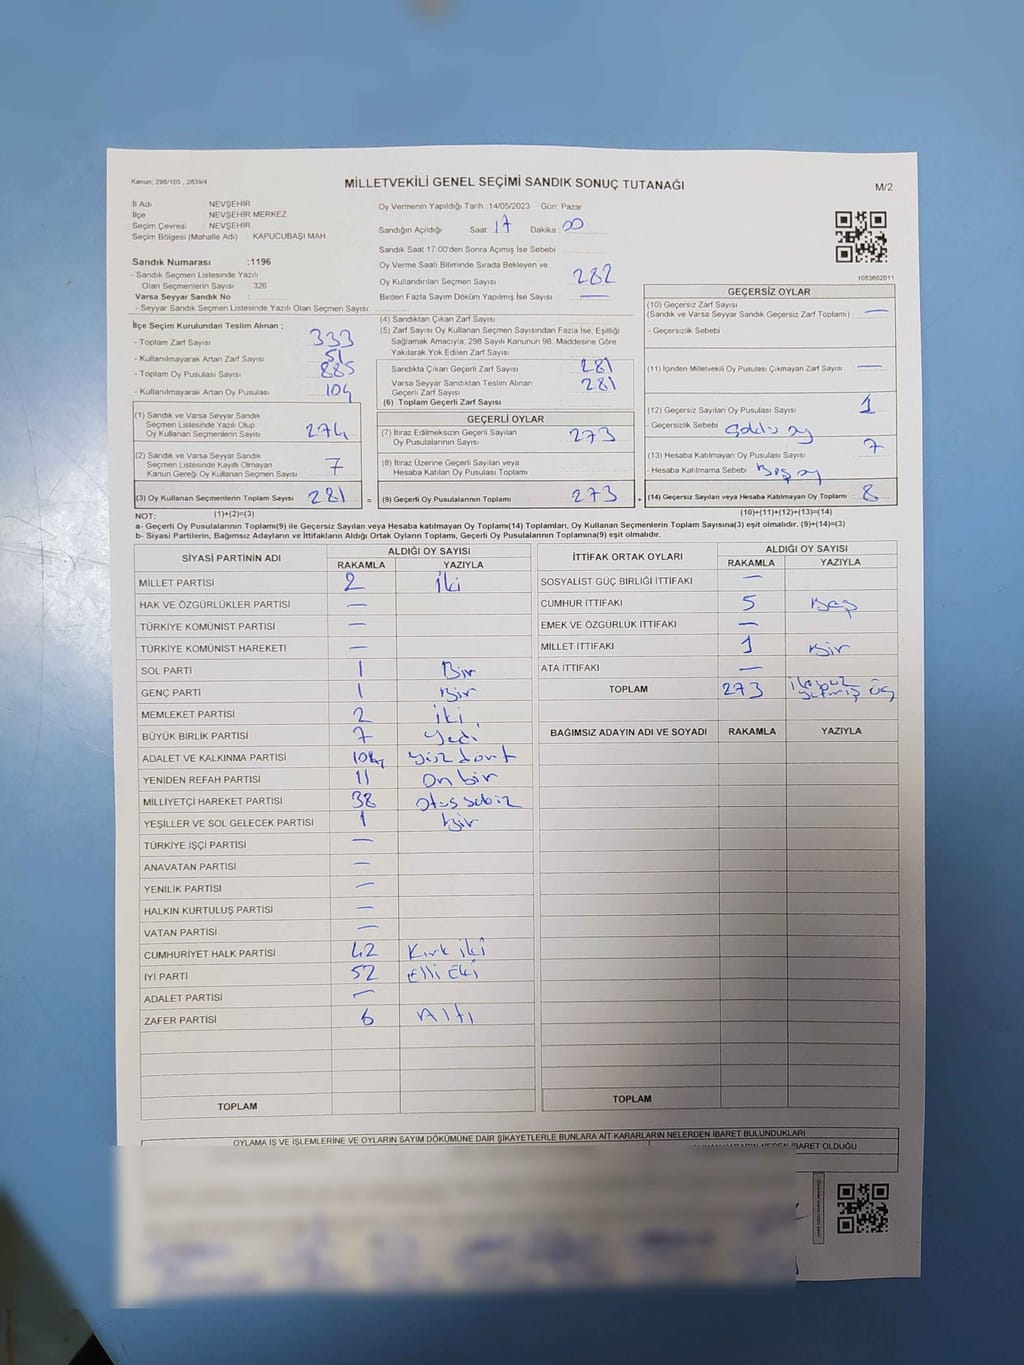 Kanun; 298/105 , 2839/4
MİLLETVEKİLİ GENEL SEÇİMİ SANDIK SONUÇ TUTANAĞI
M/2
İl Adı : NEVŞEHİR
İlçe : NEVŞEHİR MERKEZ
Seçim Çevresi : NEVŞEHİR
Seçim Bölgesi (Mahalle Adı) : KAPUCUBAŞI MAH
Sandık Numarası :1196
- Sandık Seçmen Listesinde Yazılı
Olan Seçmenlerin Sayısı 326
Varsa Seyyar Sandık No :
- Seyyar Sandık Seçmen Listesinde Yazılı Olan Seçmen Sayısı:
İlçe Seçim Kurulundan Teslim Alınan ;
- Toplam Zarf Sayısı 333
- Kullanılmayarak Artan Zarf Sayısı 51
- Toplam Oy Pusulası Sayısı 885
- Kullanılmayarak Artan Oy Pusulası 104
(1) Sandık ve Varsa Seyyar Sandık
Seçmen Listesinde Yazılı Olup
Oy Kullanan Seçmenlerin Sayısı 274
(2) Sandık ve Varsa Seyyar Sandık
Seçmen Listesinde Kayıtlı Olmayan
Kanun Gereği Oy Kullanan Seçmen Sayısı 7
(3) Oy Kullanan Seçmenlerin Toplam Sayısı 281 =
Oy Vermenin Yapıldığı Tarih :14/05/2023 Gün: Pazar
Sandığın Açıldığı Saat: 17 Dakika : 00
Sandık Saat 17:00'den Sonra Açımış İse Sebebi :
Oy Verme Saati Bitiminde Sırada Bekleyen ve
Oy Kullandırılan Seçmen Sayısı 282
Birden Fazla Sayım Döküm Yapılmış İse Sayısı —
(4) Sandıktan Çıkan Zarf Sayısı
(5) Zarf Sayısı Oy Kullanan Seçmen Sayısından Fazla İse, Eşitliği
Sağlamak Amacıyla; 298 Sayılı Kanunun 98. Maddesine Göre
Yakılarak Yok Edilen Zarf Sayısı
Sandıkta Çıkan Geçerli Zarf Sayısı 281
Varsa Seyyar Sandıktan Teslim Alınan 281
Geçerli Zarf Sayısı
(6) Toplam Geçerli Zarf Sayısı
GEÇERLİ OYLAR
(7) İtiraz Edilmeksizin Geçerli Sayılan
Oy Pusulalarının Sayısı 273
(8) İtiraz Üzerine Geçerli Sayılan veya
Hesaba Katılan Oy Pusulası Toplamı
(9) Geçerli Oy Pusulalarının Toplamı 273 +
1083602011
GEÇERSİZ OYLAR
(10) Geçersiz Zarf Sayısı
(Sandık ve Varsa Seyyar Sandık Geçersiz Zarf Toplamı) : —
- Geçersizlik Sebebi :
(11) İçinden Milletvekili Oy Pusulası Çıkmayan Zarf Sayısı : —
(12) Geçersiz Sayılan Oy Pusulası Sayısı : 1
- Geçersizlik Sebebi : oy
(13) Hesaba Katılmayan Oy Pusulası Sayısı : 7
- Hesaba Katılmama Sebebi : Boş oy
(14) Geçersiz Sayılan veya Hesaba Katılmayan Oy Toplamı : 8
NOT: (1)+(2)=(3) (10)+(11)+(12)+(13)=(14)
a- Geçerli Oy Pusulalarının Toplamı(9) ile Geçersiz Sayılan veya Hesaba katılmayan Oy Toplamı(14) Toplamları, Oy Kullanan Seçmenlerin Toplam Sayısına(3) eşit olmalıdır. (9)+(14)=(3)
b- Siyasi Partilerin, Bağımsız Adayların ve İttifakların Aldığı Ortak Oyların Toplamı, Geçerli Oy Pusulalarının Toplamına(9) eşit olmalıdır.
SİYASİ PARTİNİN ADI ALDIĞI OY SAYISI
RAKAMLA YAZIYLA
MİLLET PARTİSİ 2 iki
HAK VE ÖZGÜRLÜKLER PARTİSİ —
TÜRKİYE KOMÜNİST PARTİSİ —
TÜRKİYE KOMÜNİST HAREKETİ —
SOL PARTİ 1 Bir
GENÇ PARTİ 1 Bir
MEMLEKET PARTİSİ 2 iki
BÜYÜK BİRLİK PARTİSİ 7 Yedi
ADALET VE KALKINMA PARTİSİ 104 yüz dört
YENİDEN REFAH PARTİSİ 11 On bir
MİLLİYETÇİ HAREKET PARTİSİ 38 otuz sekiz
YEŞİLLER VE SOL GELECEK PARTİSİ 1 Bir
TÜRKİYE İŞÇİ PARTİSİ —
ANAVATAN PARTİSİ —
YENİLİK PARTİSİ —
HALKIN KURTULUŞ PARTİSİ —
VATAN PARTİSİ —
CUMHURİYET HALK PARTİSİ 42 Kırk iki
İYİ PARTİ 52 Elli Eki
ADALET PARTİSİ —
ZAFER PARTİSİ 6 Altı
TOPLAM
İTTİFAK ORTAK OYLARI ALDIĞI OY SAYISI
RAKAMLA YAZIYLA
SOSYALİST GÜÇ BİRLİĞİ İTTİFAKI —
CUMHUR İTTİFAKI 5 Beş
EMEK VE ÖZGÜRLÜK İTTİFAKI —
MİLLET İTTİFAKI 1 Bir
ATA İTTİFAKI —
TOPLAM 273 ikiyüz yetmiş üç
BAĞIMSIZ ADAYIN ADI VE SOYADI RAKAMLA YAZIYLA
TOPLAM
OYLAMA İŞ VE İŞLEMLERİNE VE OYLARIN SAYIM DÖKÜMÜNE DAİR ŞİKAYETLERLE BUNLARA AİT KARARLARIN NELERDEN İBARET BULUNDUKLARI
İBARET OLDUĞU